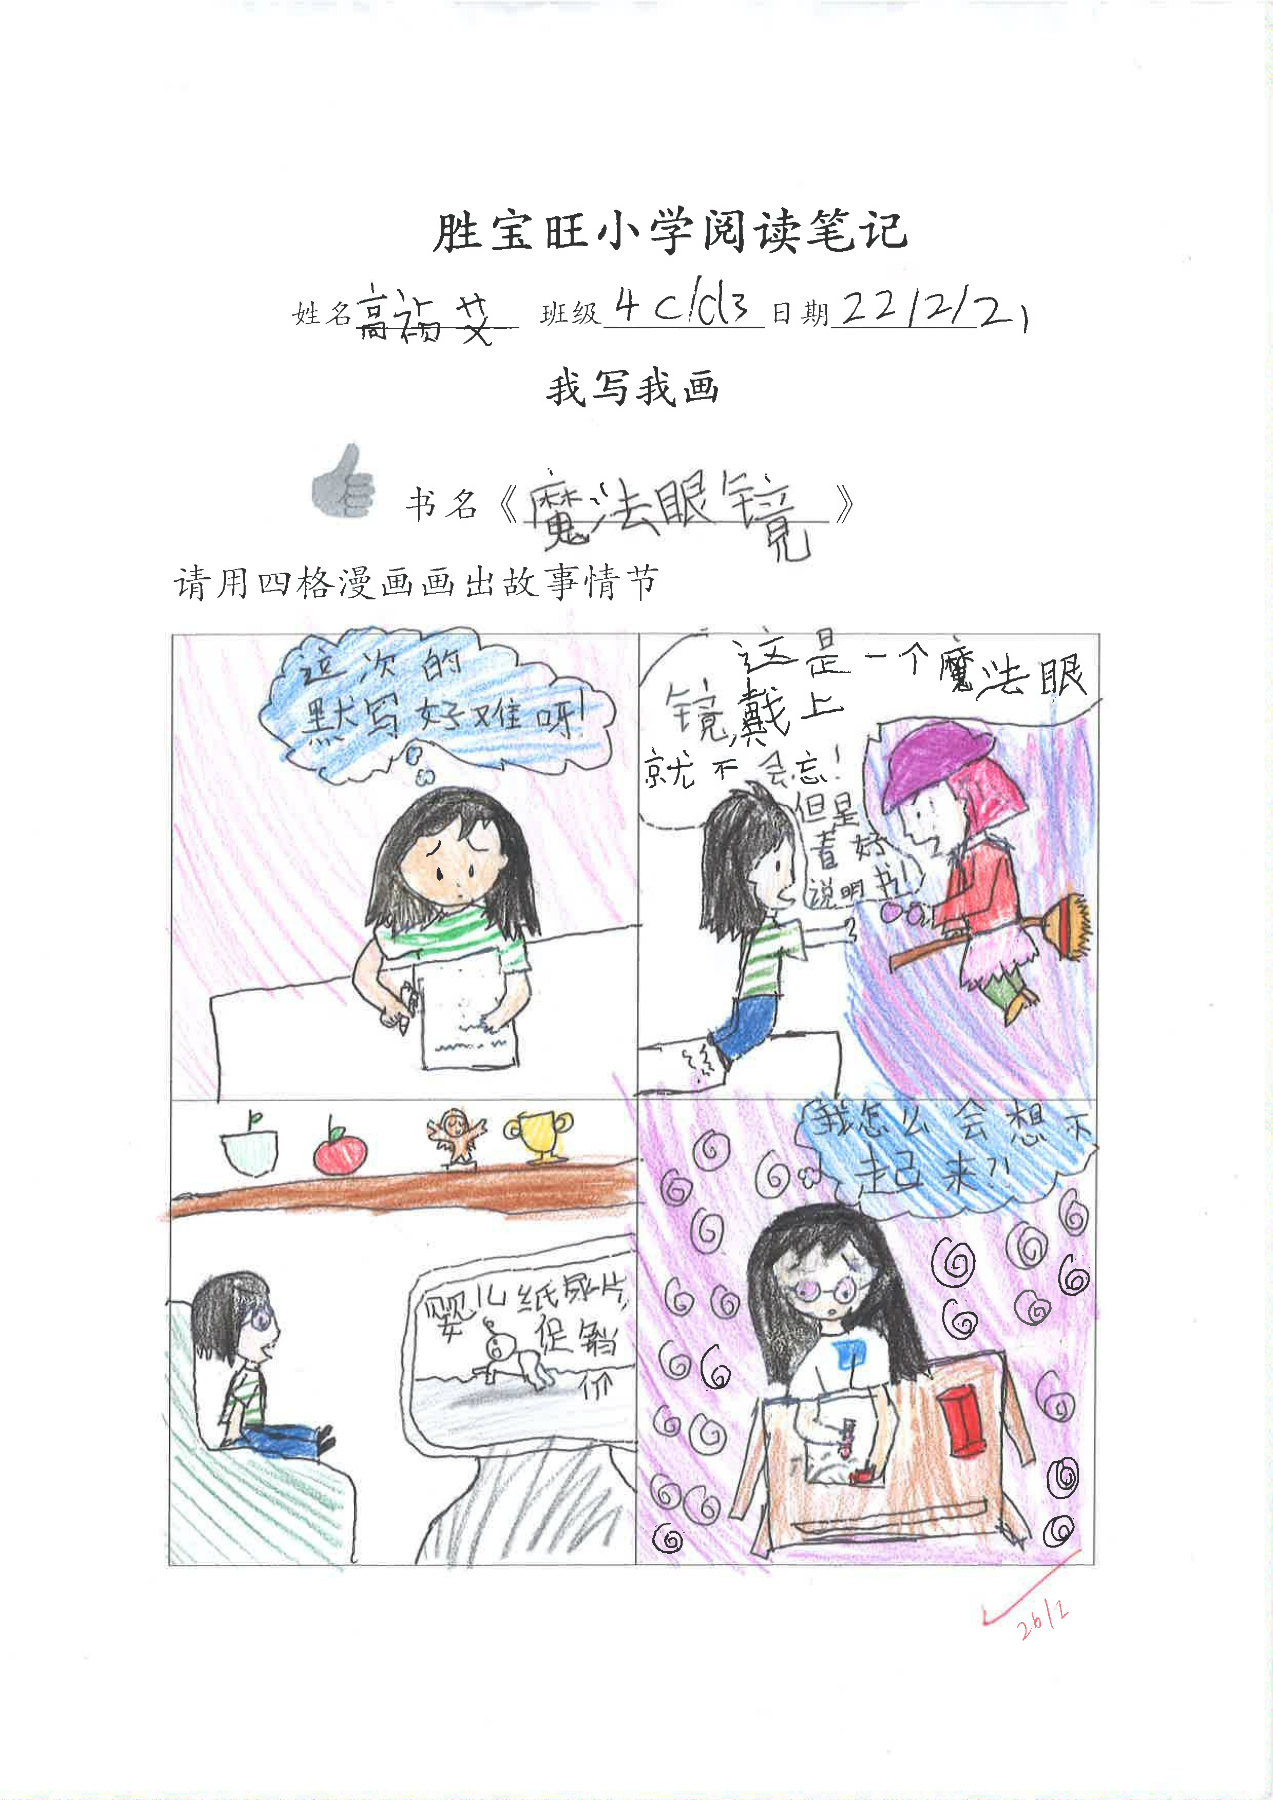 胜宝旺小学阅读笔记
姓名高福芠 班级4 c/d3日期22/2/21
我写我画
书名《魔法眼镜》
请用四格漫画画出故事情节
这次的
默写好难呀！
这是一个魔法眼
镜,戴上
就不会忘！
但是
看好
说明书！
婴儿纸尿片,
促销
价
我怎么会想不
起来?!
26/2